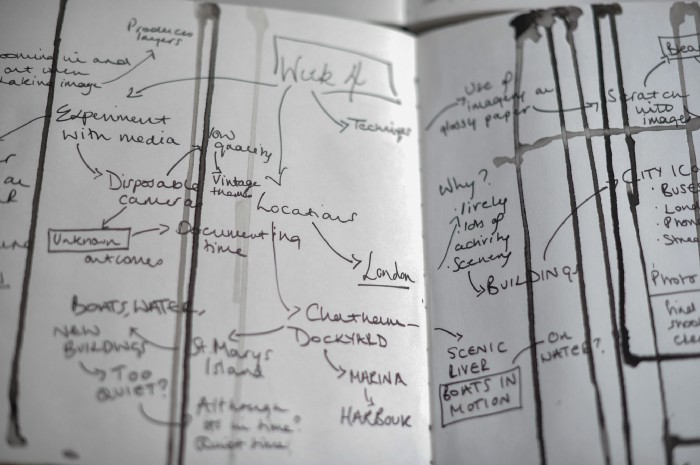 Produces
layers
ooming in and
out when
taking image
Week 4
Experiment
with media
low
quality
Vintage
theme
Disposable
camera
Unknown
outcomes
Documenting
time
Locations
London
BOATS, WATER,
NEW
BUILDINGS
TOO
QUIET?
St Marys
Island
Although
in time?
Quiet time
Chatham
DOCKYARD
MARINA
HARBOUR
Use of
imagery on
glossy paper
Scratch
into
image
Why?
· lively
· lots of
activity
· Scenery
BUILDINGS
SCENIC
RIVER
BOATS IN
MOTION
ON
WATER?
CITY ICO
· BUSE
· Lond
· Phon
· Stree
Photo